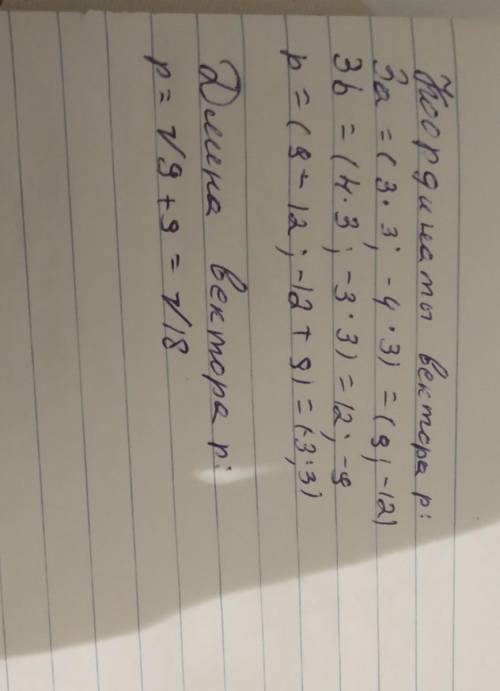 Координаты вектора р:
3a = (3·3; -4·3) = (9; -12)
3b = (4·3; -3·3) = 12; -9
p = (9-12; -12+9) = (-3;3)
Длина вектора р:
p = √9+9 = √18